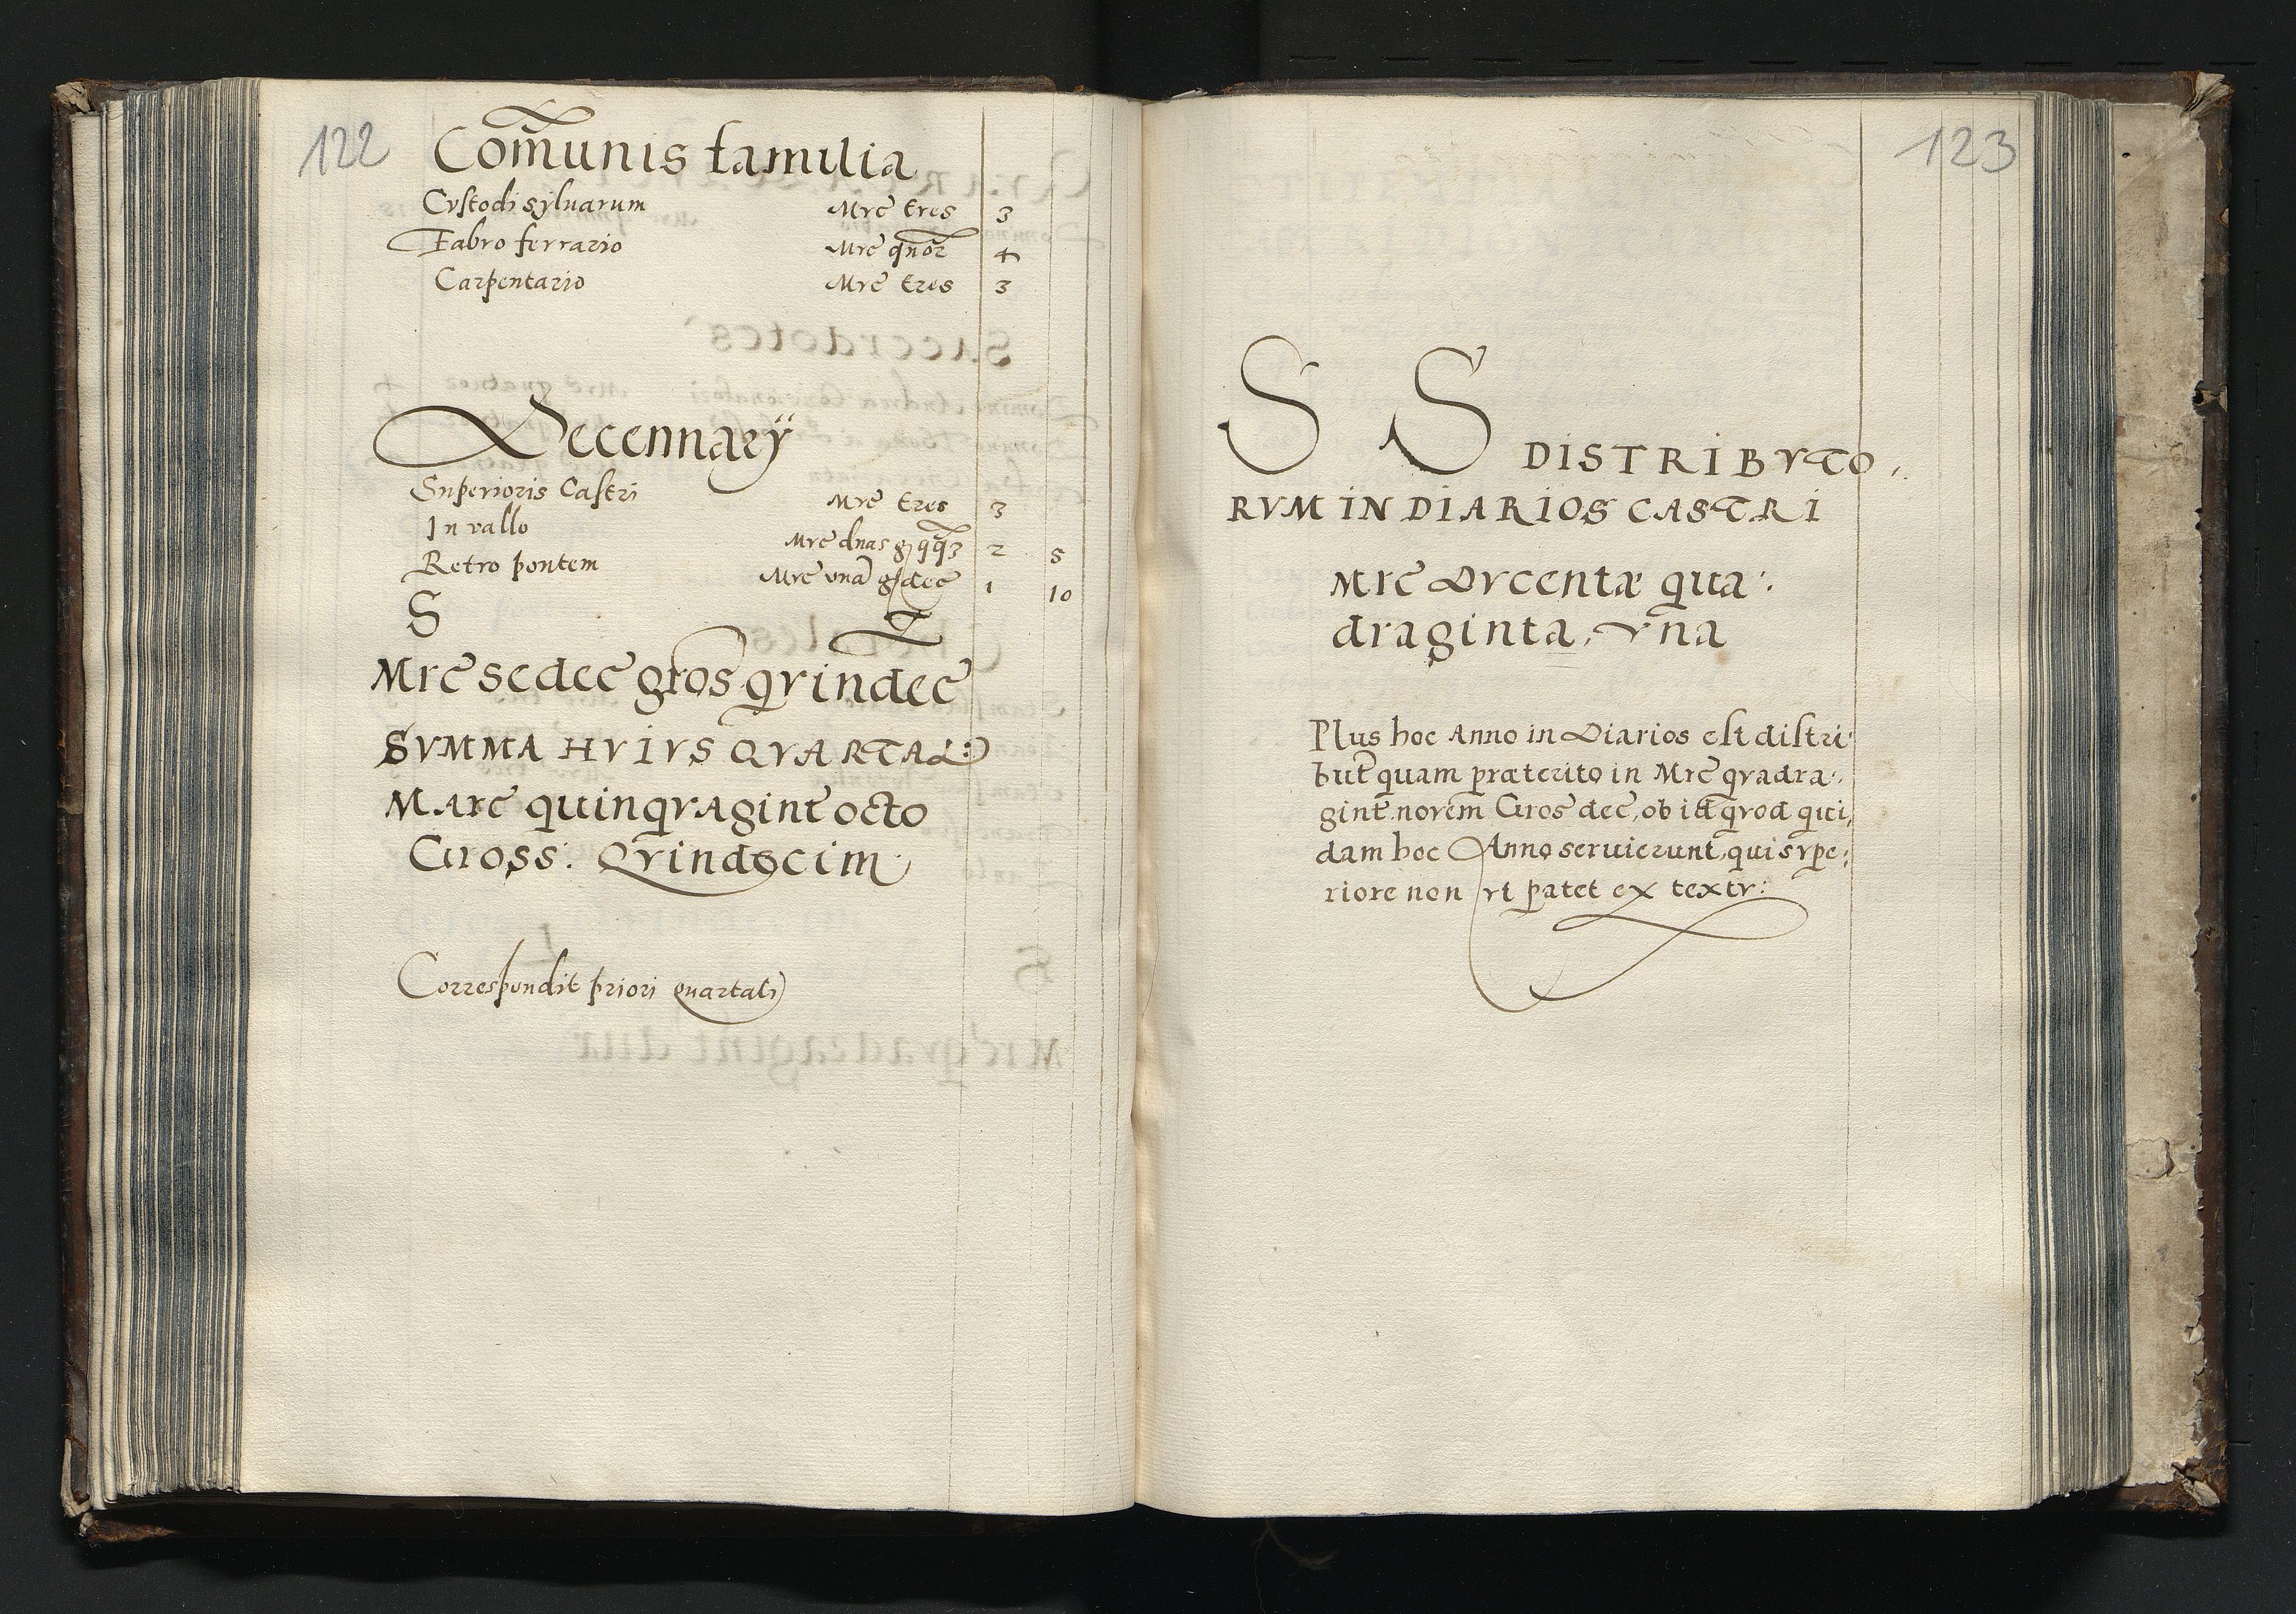 122
Com̃unis familia
Cvstodi syluarum Mrc̃ tres 3
Fabro ferrario Mrc̃ qnõr 4
Carpentario Mrc̃ tres 3
Decennarÿ
Superioris Castri Mrc̃ tres 3
In vallo Mrc̃ duas 2 5
Retro pontem Mrc̃ vnã g dec̃ 1 10
S
Mrc̃ sedec̃ gros̃ qvindec̃
SVMMA HVIVS QVARTAL:
Marc̃ quinqvagint̃ octo
Gross: Qvindecim
Correspondit priori quartali
123
S S DISTRIBVTO,
RVM IN DIARIOS CASTRI
Mrc̃ Dvcentæ qua:
draginta, vna
Plus hoc Anno in Diarios est distri:
but̃ quam præterito in Mrc̃ qvadra:
gint̃ novem Gros̃ dec̃, ob id qvod qui,
dam hoc Anno seruierunt, qui svpe:
riore non vt patet ex textv: